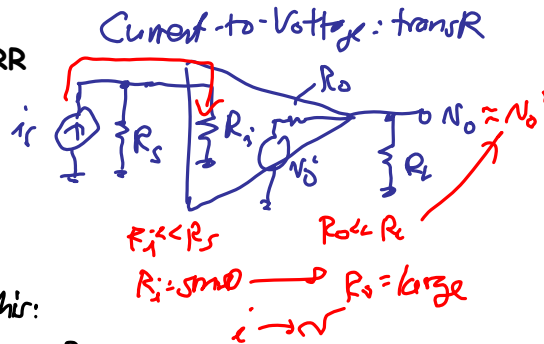 Current-to-Voltage: transR
RR
is Rs Ri Ro No' RL No ≈ No'
Ri << Rs Ro << RL
Ri = small → Ro = large
i → v
this: